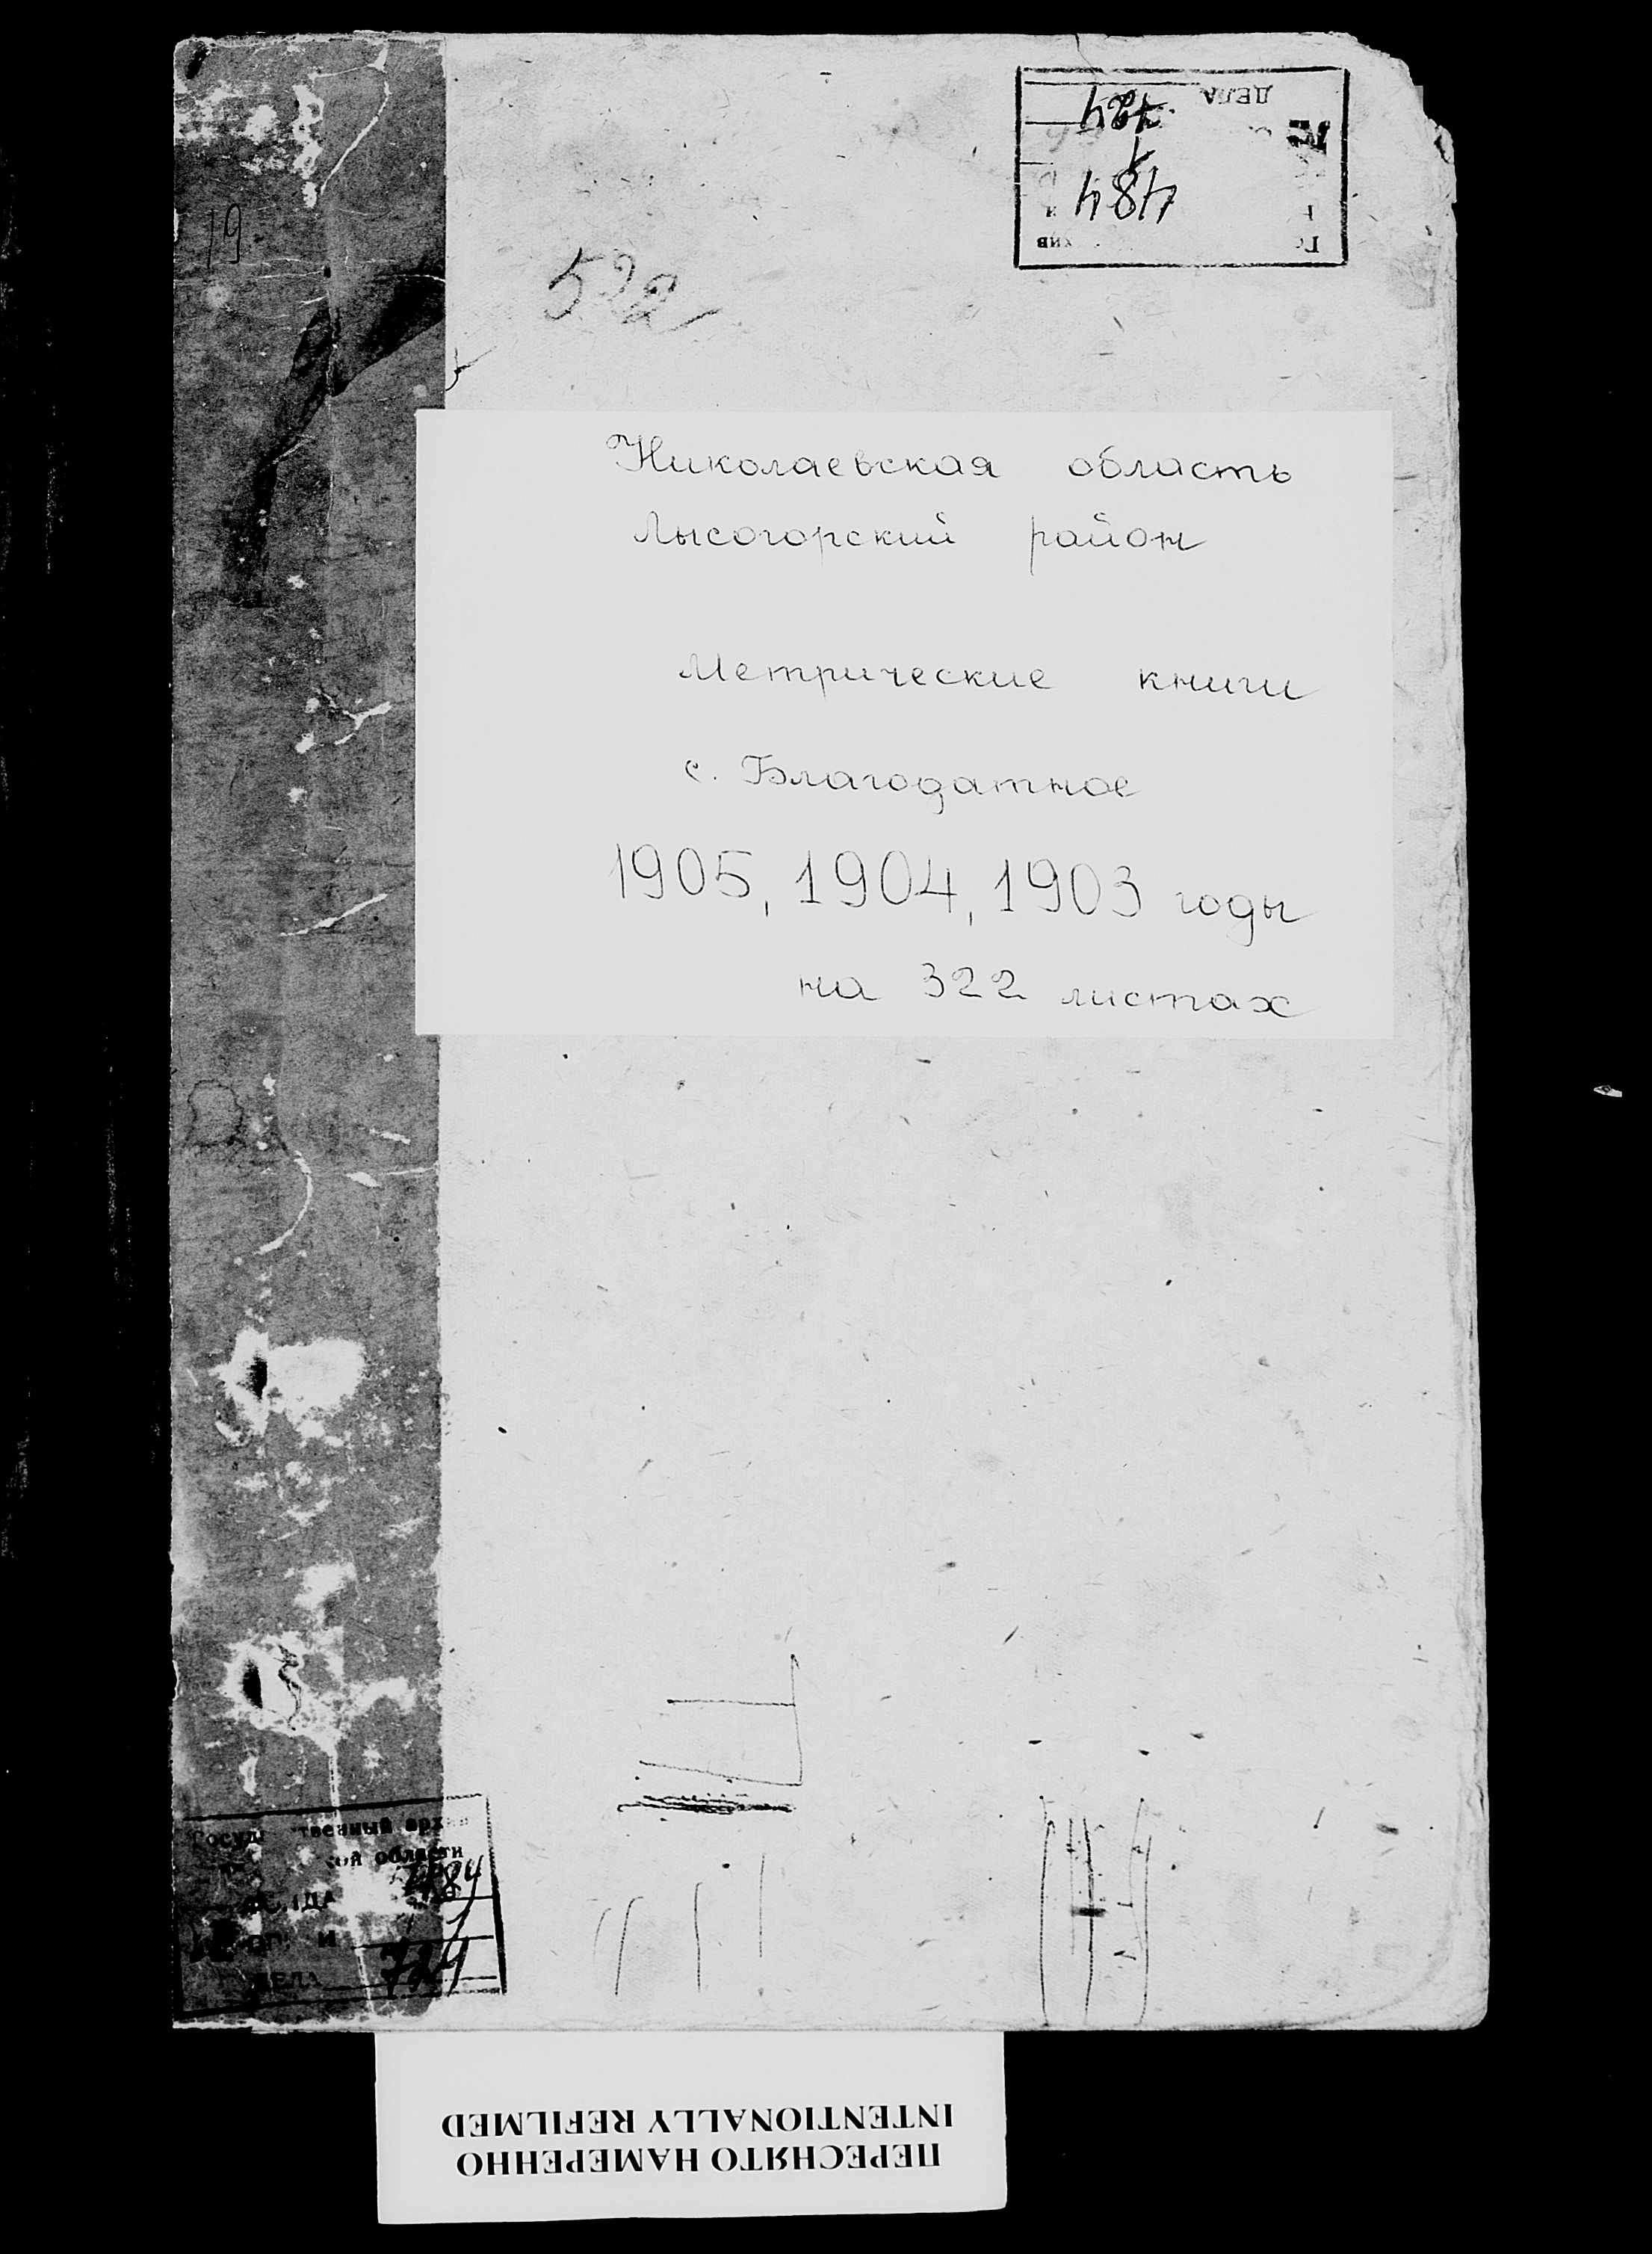 ДЕЛА 424
1
484
19
522
Николаевская область
Лысогорский район
Метрические книги
с. Благодатное
1905, 1904, 1903 годы
на 322 листах
области
484
И 1
724
ПЕРЕСНЯТО НАМЕРЕННО
INTENTIONALLY REFILMED